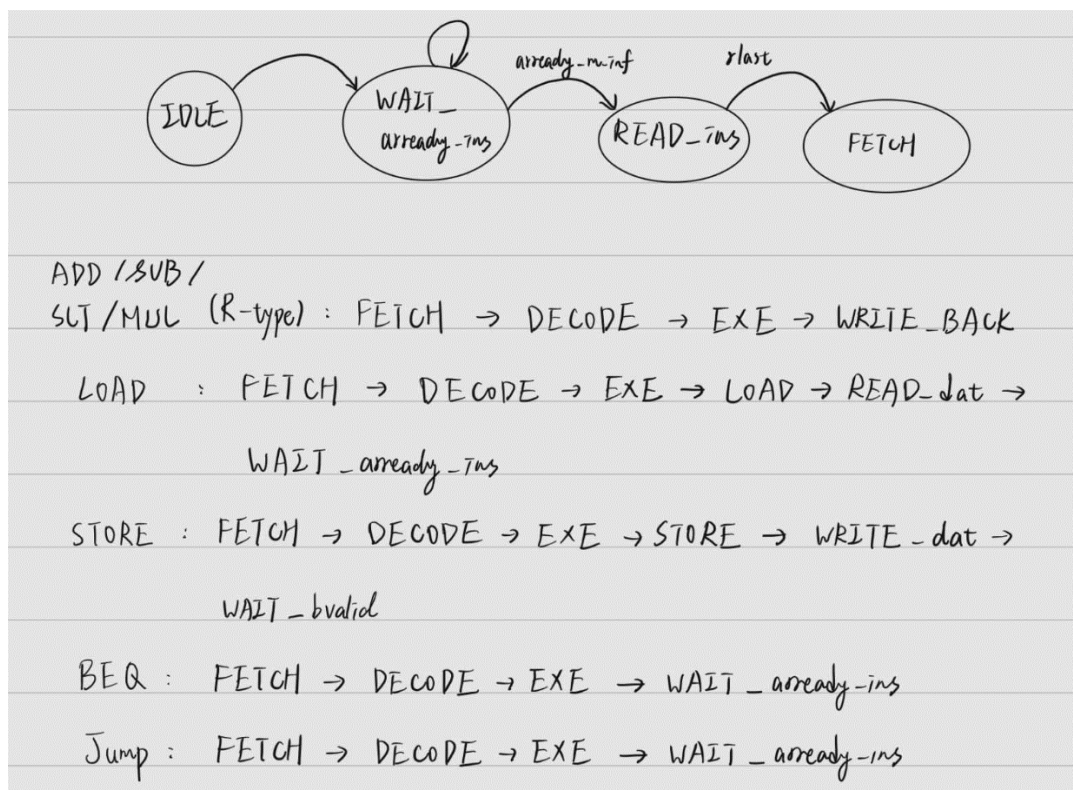 arready_m_inf rlast
IDLE WAIT_ READ_ins FETCH
arready_ins
ADD /SUB/
SLT/MUL (R-type) : FETCH → DECODE → EXE → WRITE_BACK
LOAD : FETCH → DECODE → EXE → LOAD → READ_dat →
WAIT_arready_ins
STORE : FETCH → DECODE → EXE → STORE → WRITE_dat →
WAIT_bvalid
BEQ : FETCH → DECODE → EXE → WAIT_arready_ins
Jump : FETCH → DECODE → EXE → WAIT_arready_ins